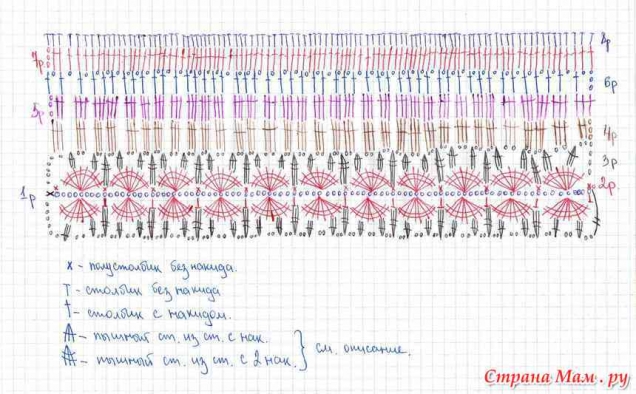 8р
7р
6р
5р
4р
3р
2р
1р
х - полустолбик без накида.
Т - столбик без накида
† - столбик с накидом.
- пышный ст. из ст. с нак.
- пышный ст. из ст. с 2 нак.
см. описание.
Страна Мам.ру